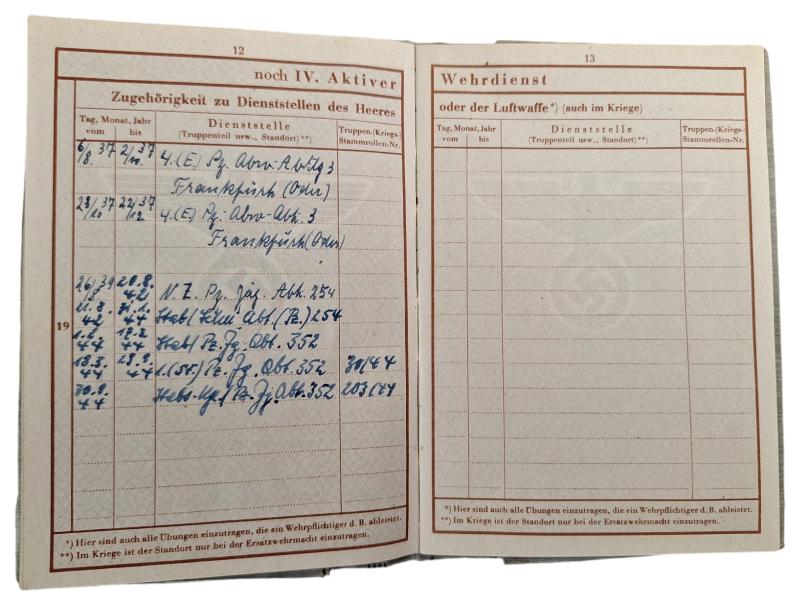 12
noch IV. Aktiver
Zugehörigkeit zu Dienststellen des Heeres
Tag, Monat, Jahr
vom bis
Dienststelle
(Truppenteil usw., Standort)**)
Truppen-(Kriegs-)
Stammrollen-Nr.
6/8. 37 2/10. 37 4.(E.) Pz. Abw.-Abtlg 3
Frankfurth (Oder)
23/10 37 22/12 37 4.(E.) Pz.-Abw-Abt. 3
Frankfurth (Oder)
26/ 39 20.8. 42 Pz. Jäg. Abt. 254
21.8. 42 31.1. 44 Stab/ Abt. (Pz.) 254
1.2. 44 17.3. 44 Stab/ Pz. Jg. Abt. 352
18.3. 44 29.8. 44 1.(St.) Pz. Jg. Abt. 352 30/44
30.8. 44 Stabs-Kp./ Pz. Jg. Abt. 352 203/44
19
*) Hier sind auch alle Übungen einzutragen, die ein Wehrpflichtiger d. B. ableistet.
**) Im Kriege ist der Standort nur bei der Ersatzwehrmacht einzutragen.
13
Wehrdienst
oder der Luftwaffe*) (auch im Kriege)
Tag, Monat, Jahr
vom bis
Dienststelle
(Truppenteil usw., Standort)**)
Truppen-(Kriegs-)
Stammrollen-Nr.
*) Hier sind auch alle Übungen einzutragen, die ein Wehrpflichtiger d. B. ableistet.
**) Im Kriege ist der Standort nur bei der Ersatzwehrmacht einzutragen.